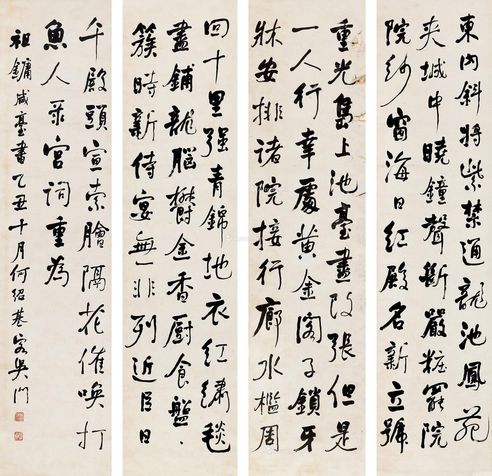 東内斜將紫禁通龍池鳳苑
夾城中曉鐘聲斷嚴粧罷院
院紗窗海日紅殿名新立號
重光島上池臺盡改張但是
一人行幸處黄金閣子鎖牙
牀安排諸院接行廊水檻周
回十里强青錦地衣紅繡毯
盡鋪龍腦欝金香厨食盤、
簇時新侍宴無非列近臣日
午殿頭宣索膾隔花催唤打
魚人宫詞重為
祖鏞臺書乙丑十月何紹基客吳門